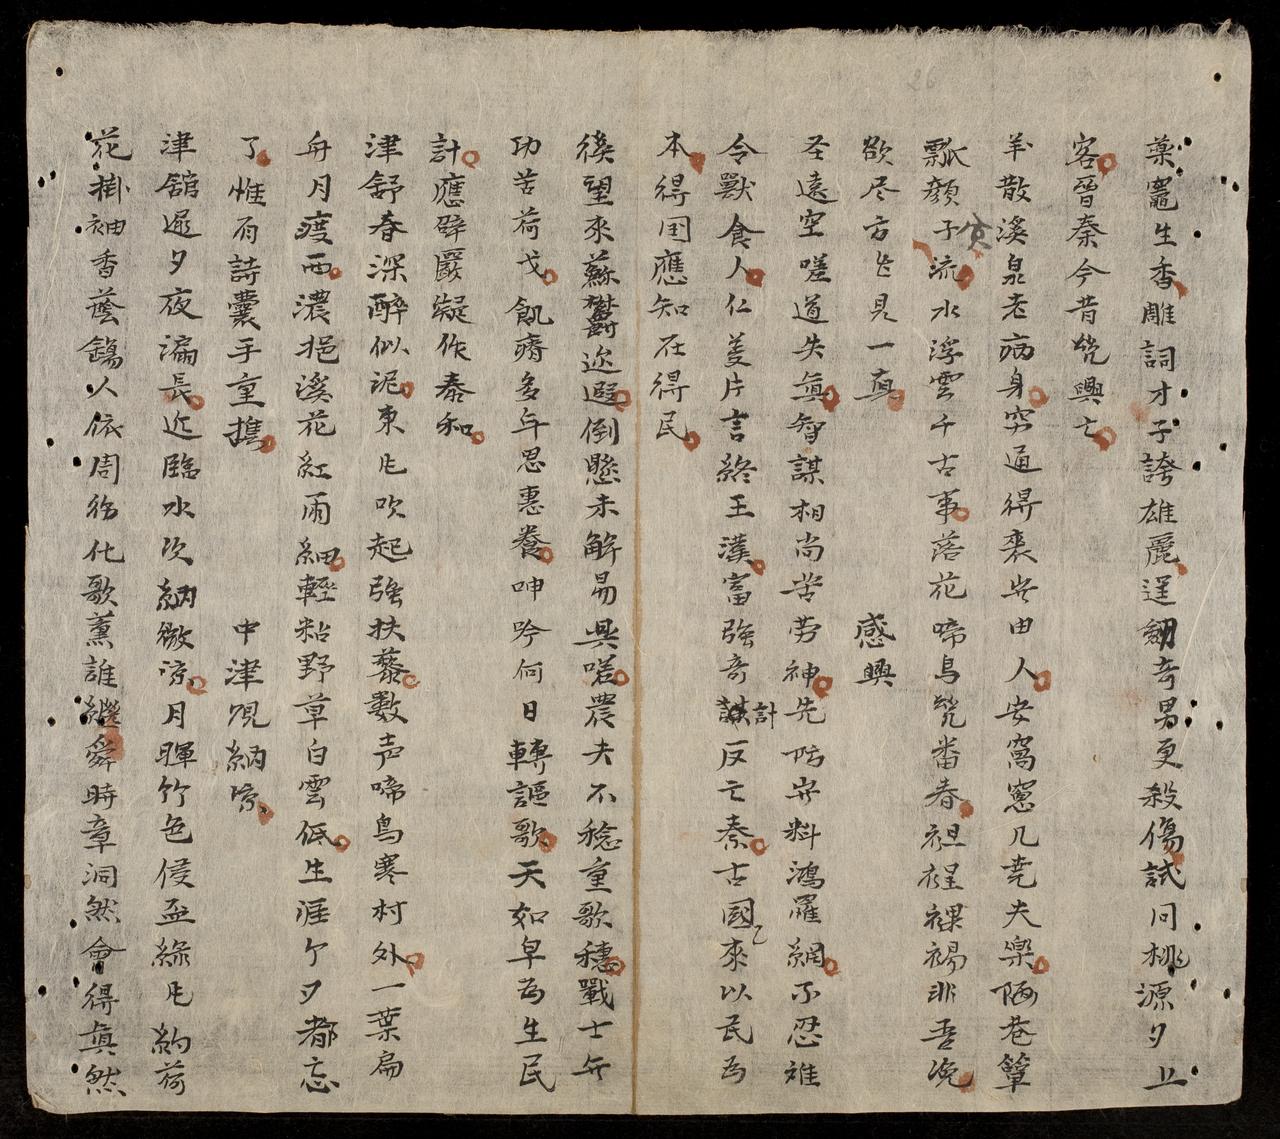 藥竈生香雕詞才子誇雄麗逞劒奇男更殺傷試问桃源多少
客晋秦今昔幾興亡
半散溪泉老病身穷通得喪岂由人安窩窓几尭夫樂陋巷簞
瓢顔子流貧水浮雲千古事落花啼鳥幾番春袒裎裸裼非吾浼
欲尽方能見一真　感興
圣遠空嗟道失真智謀相尚苦劳神先防岂料鴻罹網不忍难
令獸食人仁義片言終王漢富強奇謀計反亡秦古國來以民为
本得囯應知在得民
徯望來蘇欝迩遐倒懸未觧易興嗟農夫不稔重歌穗戰士無
功苦荷戈飢瘠多年思惠養呻吟何日轉謳歌天如早为生民
計應辟嚴凝作泰和
津舘春深醉似泥東風吹起強扶藜數声啼鳥寒村外一葉扁
舟月渡西濃挹溪花紅雨細輕粘野草白雲低生涯个夕都忘
了惟有詩囊手重携　中津观納凉
津舘遲夕夜漏長近臨水次納微凉月暉竹色侵盃綠風約荷
花掛袖香蔭人依周化歌薫誰繼舜時章洞然會得真然